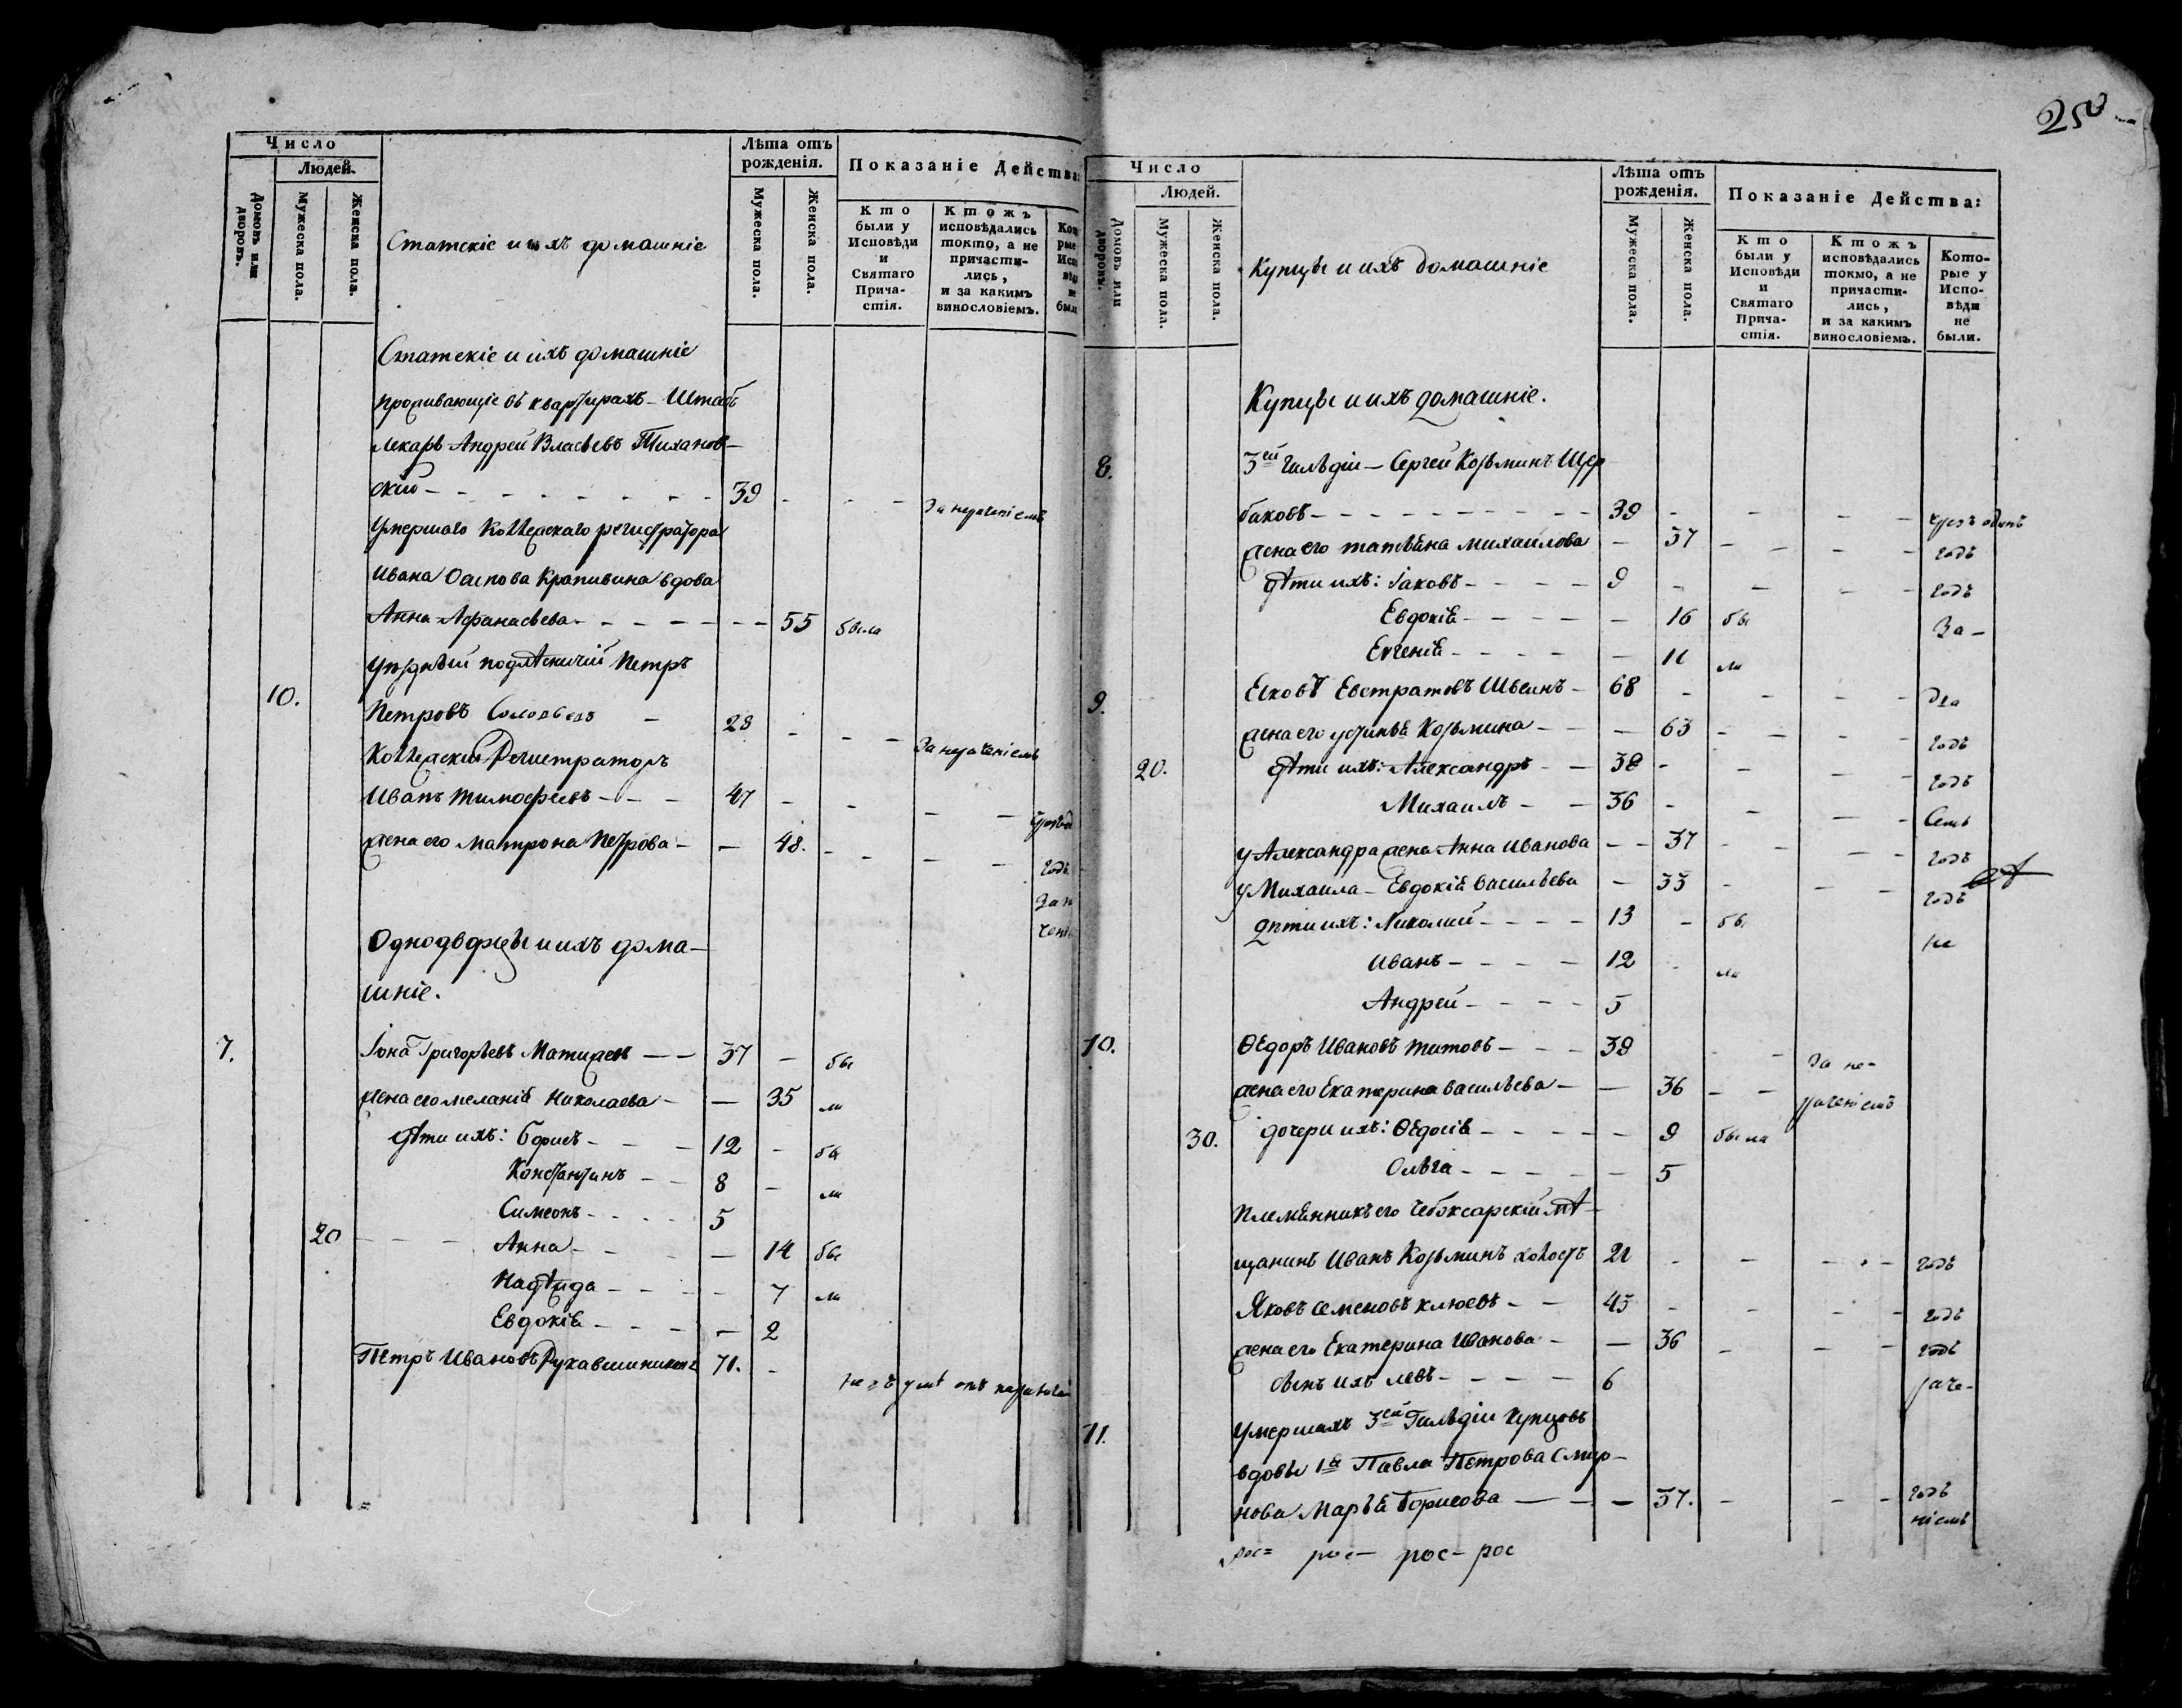 Число
Людей.
Домовъ или дворовъ.
Мужеска пола.
Женска пола.
Статскіе и ихъ домашніе
Лѣта отъ рожденія.
Мужеска пола.
Женска пола.
Показаніе Действа:
Кто были у Исповѣди и Святаго Прича-стія.
Ктожъ исповѣдались токмо, а не причасти-лись, и за какимъ винословіемъ.
Статскіе и ихъ домашніе
проживающіе въ квартирахъ - Штабъ
Лекарь Андрей Власьевъ Тиханов-
скій - - - - - - - 39 - - - За нераченіемъ
Умершаго Коллежскаго регистратора
Ивана Осипова Крапивина вдова
Анна Афанасьева - - - - - - 55 была
Уѣздный подлѣкичій Петръ
10. Петровъ Соловьевъ - 28 - - - За нераченіемъ
Коллежский Регистраторъ
Иванъ Тимофеевъ - - - 47 - - - -
жена его Матрона Петрова - - 48. - - - - годъ
За н
Однодворцы и ихъ дома-
шніе.
7. Іона Григорьевъ - - 37 - бы
жена его Меланіѣ Николаева - - 35 ли
дѣти ихъ: Борисъ - - - 12 - бы
Константинъ - - 8 - ли
Симеонъ - - - - 5
20 - - - Анна - - - - 14 бы
Надѣжда - - - - 7 ли
Евдокіѣ - - - - 2
Пётръ Ивановъ Рукавишниковъ 71. -
250
Число
Людей.
Домовъ или дворовъ.
Мужеска пола.
Женска пола.
Купцы и ихъ домашніе
Лѣта отъ рожденія.
Мужеска пола.
Женска пола.
Показаніе Действа:
Кто были у Исповѣди и Святаго Прича-стія.
Ктожъ исповѣдались токмо, а не причасти-лись, и за какимъ винословіемъ.
Кото-рые у Испо-вѣди не были.
Купцы и ихъ домашніе.
8. 3ей Гильдіи - Сергей Козьминъ Щер
баковъ - - - - - - - - - 39 - - - - чрезъ одинъ
жена его Татьѣна Михайлова - 37 - - - - годъ
дѣти ихъ: Іаковъ - - - - 9 - - - годъ
Евдокіѣ - - - - - 16 бы За -
Евгеніѣ - - - - - 11 ли
9. Евстратовъ - 68 - - - - два
жена его Устиньѣ Козьмина - - - 63 - - - - годъ
20. дѣти ихъ: Александръ - - 38 - - - - годъ
Михаилъ - - 36 - - - - Семь
у Александра жена Анна Иванова - - 37 - - - - годъ
у Михаила - Евдокіѣ Васильева - 33 - - - годъ
дѣти ихъ: Николай - - - - 13 - бы не
Иванъ - - - - 12 - ли
Андрей - - - - 5
10. Ѳёдоръ Ивановъ Титовъ - - - 39 - - За не-
жена его Екатерина Васильева - - 36 - - раченіемъ
30. дочери ихъ: Ѳёдосіѣ - - - - - 9 была
Ольга - - - - - 5
Племѣнникъ его Чебоксарскій мѣ-
щанинъ Иванъ Козьминъ холостъ 21 - - - - годъ
Яковъ Семеновъ Клюевъ - - 45 - - - - годъ
жена его Екатерина Иванова - - 36 - - - годъ
сынъ ихъ Левъ - - - - 6 раче-
11. Умершихъ 3ей Гильдіи Купцовъ
вдовы 1ѣ Павла Пётрова Смир-
нова Марьѣ Борисова - - - 37. - - - годъ
ніемъ
рос= рос- рос- рос